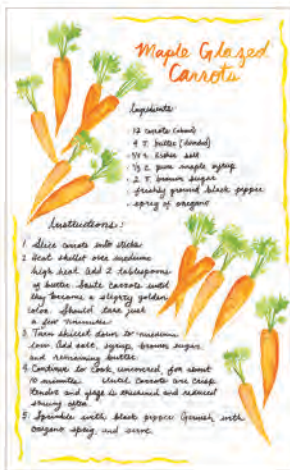 Maple Glazed
Carrots
Ingredients
· 12 carrots
· 4 T. butter (divided)
· kosher salt
· 1/3 c. pure maple syrup
· 2 T. brown sugar
· freshly ground black pepper
· sprig of oregano
Instructions:
1. Slice carrots into sticks
2. Heat skillet over medium
high heat. Add 2 tablespoons
of butter. Saute carrots until
they become a slightly golden
color. Should take just
a few minutes.
3. Turn skillet down to medium
low. Add salt, syrup, brown sugar
and remaining butter.
4. Continue to cook, uncovered, for about
10 minutes. Until carrots are crisp
tender and glaze is thickened and reduced
stirring often.
5. Sprinkle with black pepper. Garnish with
oregano sprig and serve.